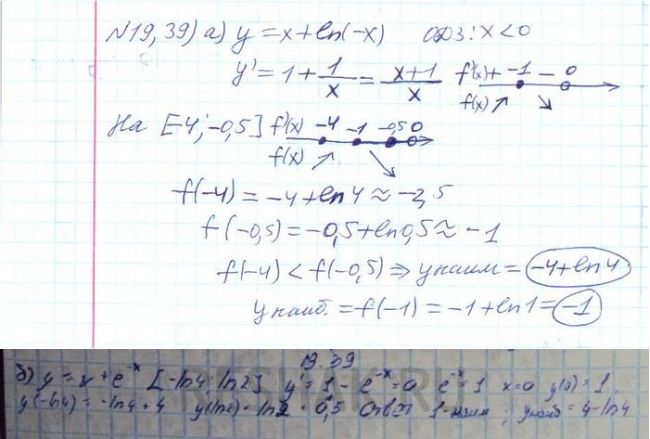 N19,39) а) y = x + ln(-x) одз: x < 0
y' = 1 + 1/x = x+1/x f'(x) + -1 - 0
f(x) ↗ ↘
На [-4; -0,5] f'(x) -4 -1 -0,5 0
f(x) ↗ ↘
f(-4) = -4 + ln 4 ≈ -2,5
f(-0,5) = -0,5 + ln 0,5 ≈ -1
f(-4) < f(-0,5) ⇒ y наим = -4 + ln 4
y наиб. = f(-1) = -1 + ln 1 = -1
19.39
б) y = x + e^-x [-ln4; ln2] y' = 1 - e^-x = 0 e^-x = 1 x = 0 y(0) = 1
y(-ln4) = -ln4 + 4 y(ln2) = ln2 + 0,5 Ответ 1-наим; y наиб = 4-ln4